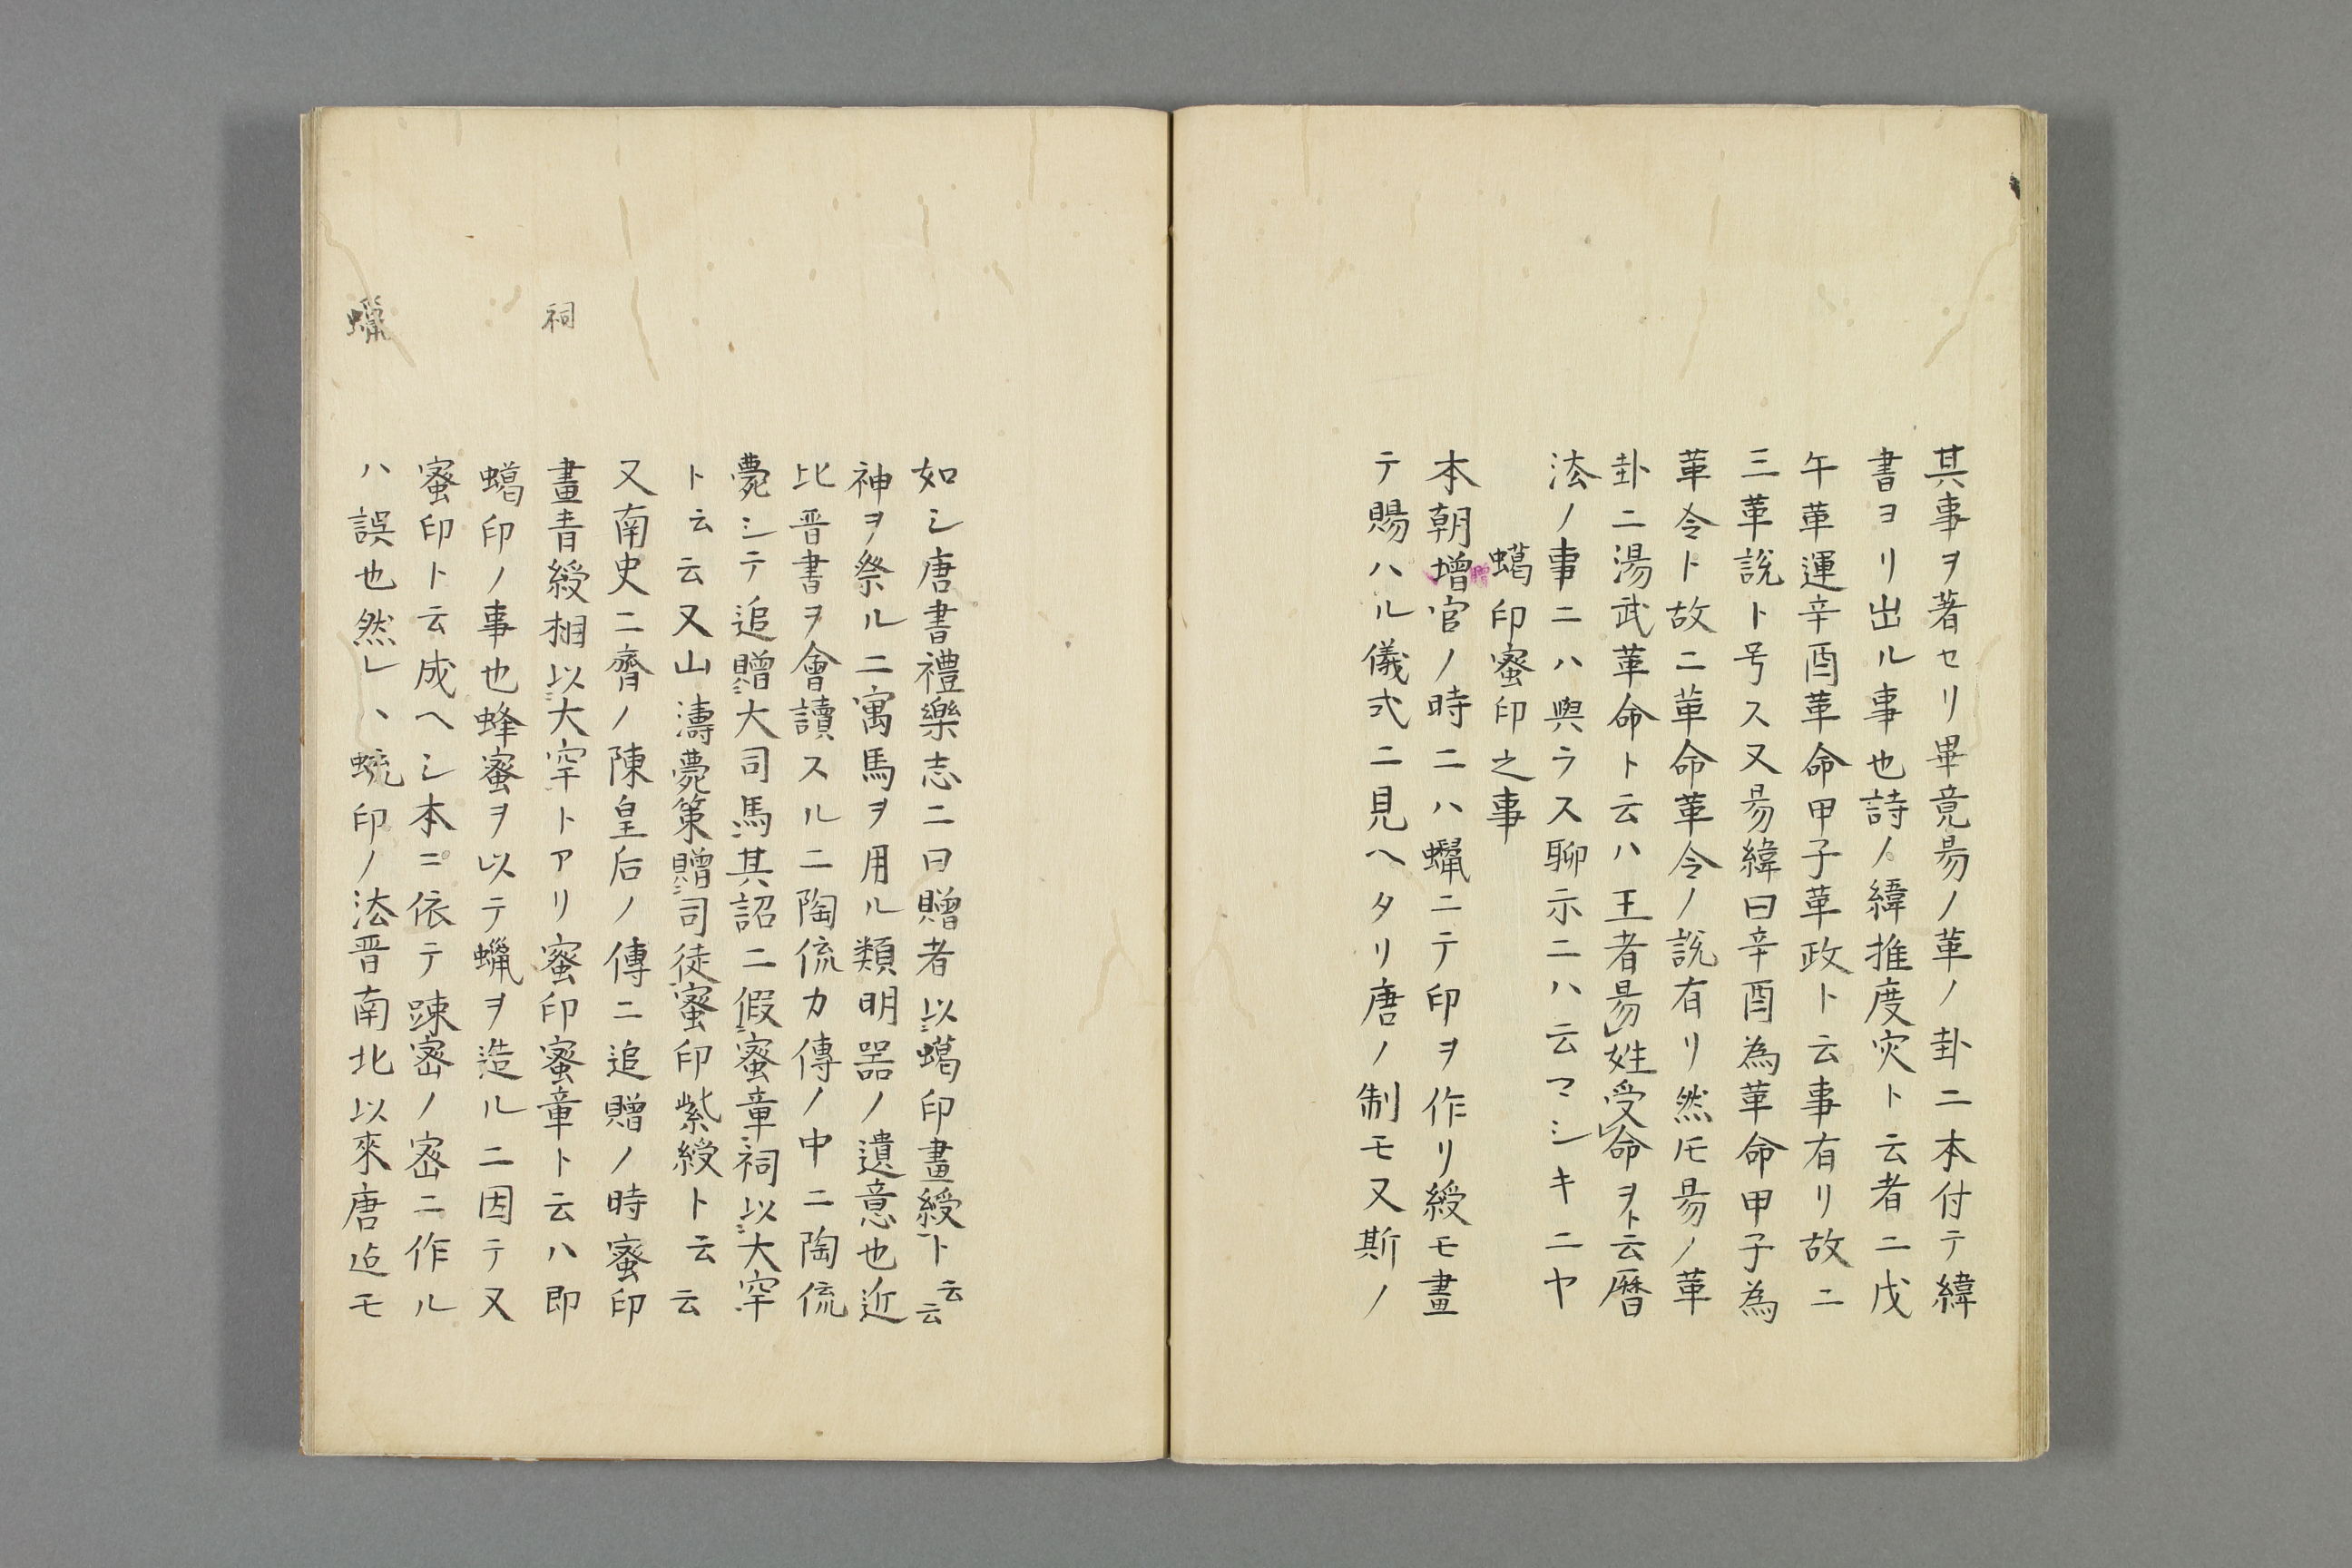 其事ヲ著セリ畢竟昜ノ革ノ卦ニ本付テ緯
書ヨリ出ル事也詩ノ緯推度灾ト云者ニ戊
午革運辛酉革命甲子革政ト云事有リ故ニ
三革説ト号ス又昜緯曰辛酉為革命甲子為
革令ト故ニ革命革令ノ説有リ然㠪昜ノ革
卦ニ湯武革命ト云ハ王者昜姓受命ヲト云曆
法ノ事ニハ與ラス聊示ニハ云マシキニヤ
蝎印蜜印之事
本朝增官ノ時ニハ蠟ニテ印ヲ作リ綬モ畫
贈
テ賜ハル儀式ニ見ヘタリ唐ノ制モ又斯ノ
如シ唐書禮樂志ニ曰贈者以蝎印畫綬ト云云
神ヲ祭ルニ寓馬ヲ用ル類明器ノ遺意也近
比晋書ヲ會讀スルニ陶侃カ傳ノ中ニ陶侃
薨シテ追贈大司馬其詔ニ假蜜章祠以大窂
ト云云又山濤薨策贈司徒蜜印紫綬ト云云
又南史ニ齊ノ陳皇后ノ傳ニ追贈ノ時蜜印
畫青綬相以大窂トアリ蜜印蜜章ト云ハ即
祠
蝎印ノ事也蜂蜜ヲ以テ蠟ヲ造ルニ因テ又
蜜印ト云成ヘシ本ニ依テ踈密ノ密ニ作ル
ハ誤也然レハ印ノ法晋南北以來唐迠モ
蠟